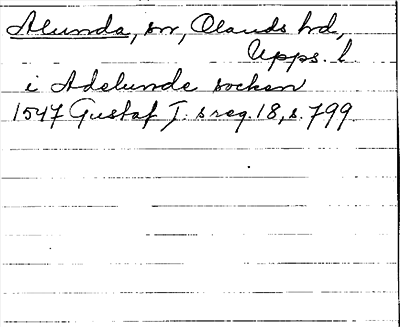 Alunda, sn, Olands hd,
Upps. l.
i Adelunde socken
1547 Gustaf I:s reg. 18, s. 799.